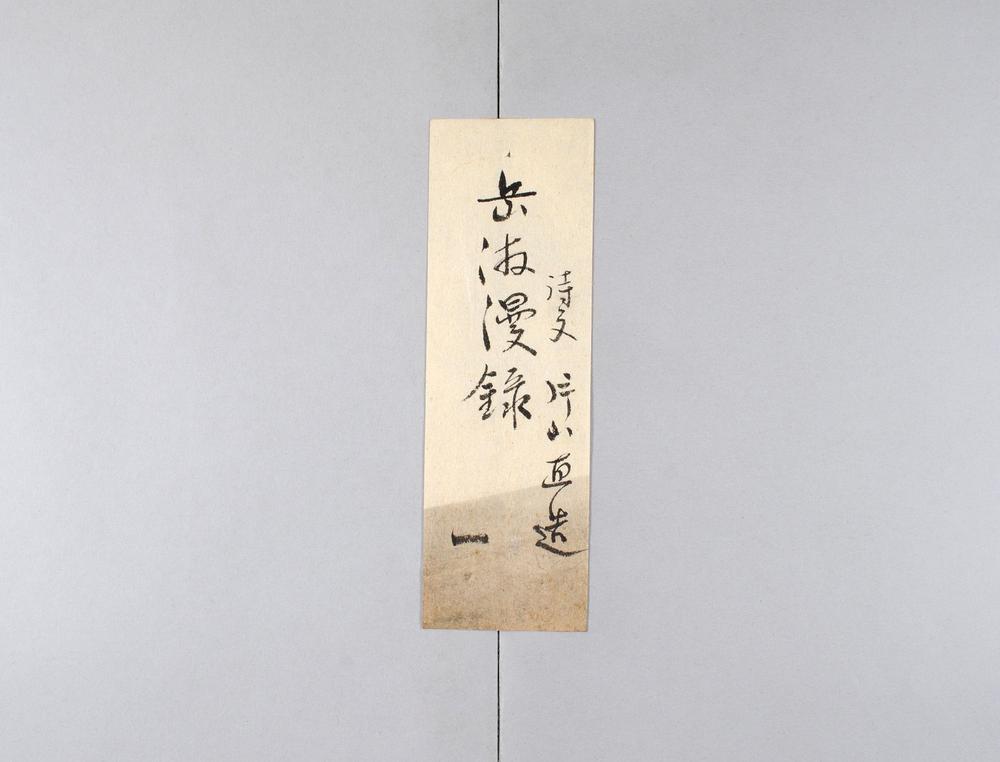 詩文 片山直造
岳淑漫録
一